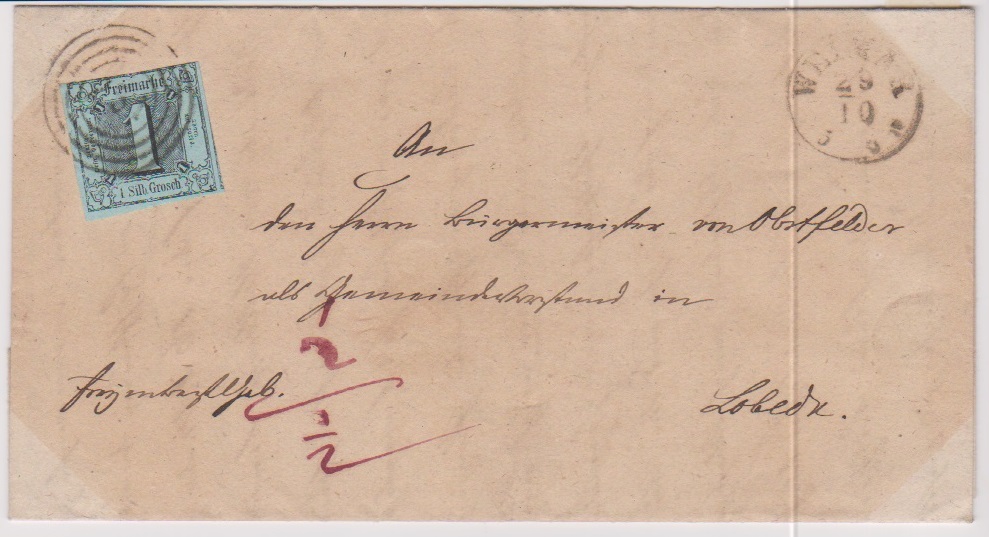 Freimarke
1
1 Silb. Grosch
WEIMAR
29
10
An
den Herrn Bürgermeister von Obstfelder
als Gemeindevorstand in
Lobeda.